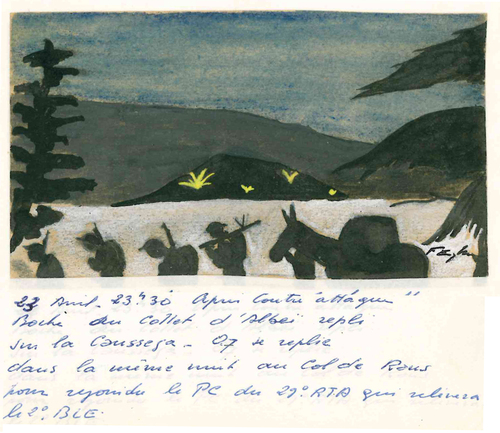 23 Avril. 23h30 Après Contre attaque "
Boche au Collet d'Albeï repli
sur la Coussega - On se replie
dans la même nuit au Col de Raus
pour rejoindre le PC du 29e RTA qui relèvera
le 2e BLE.